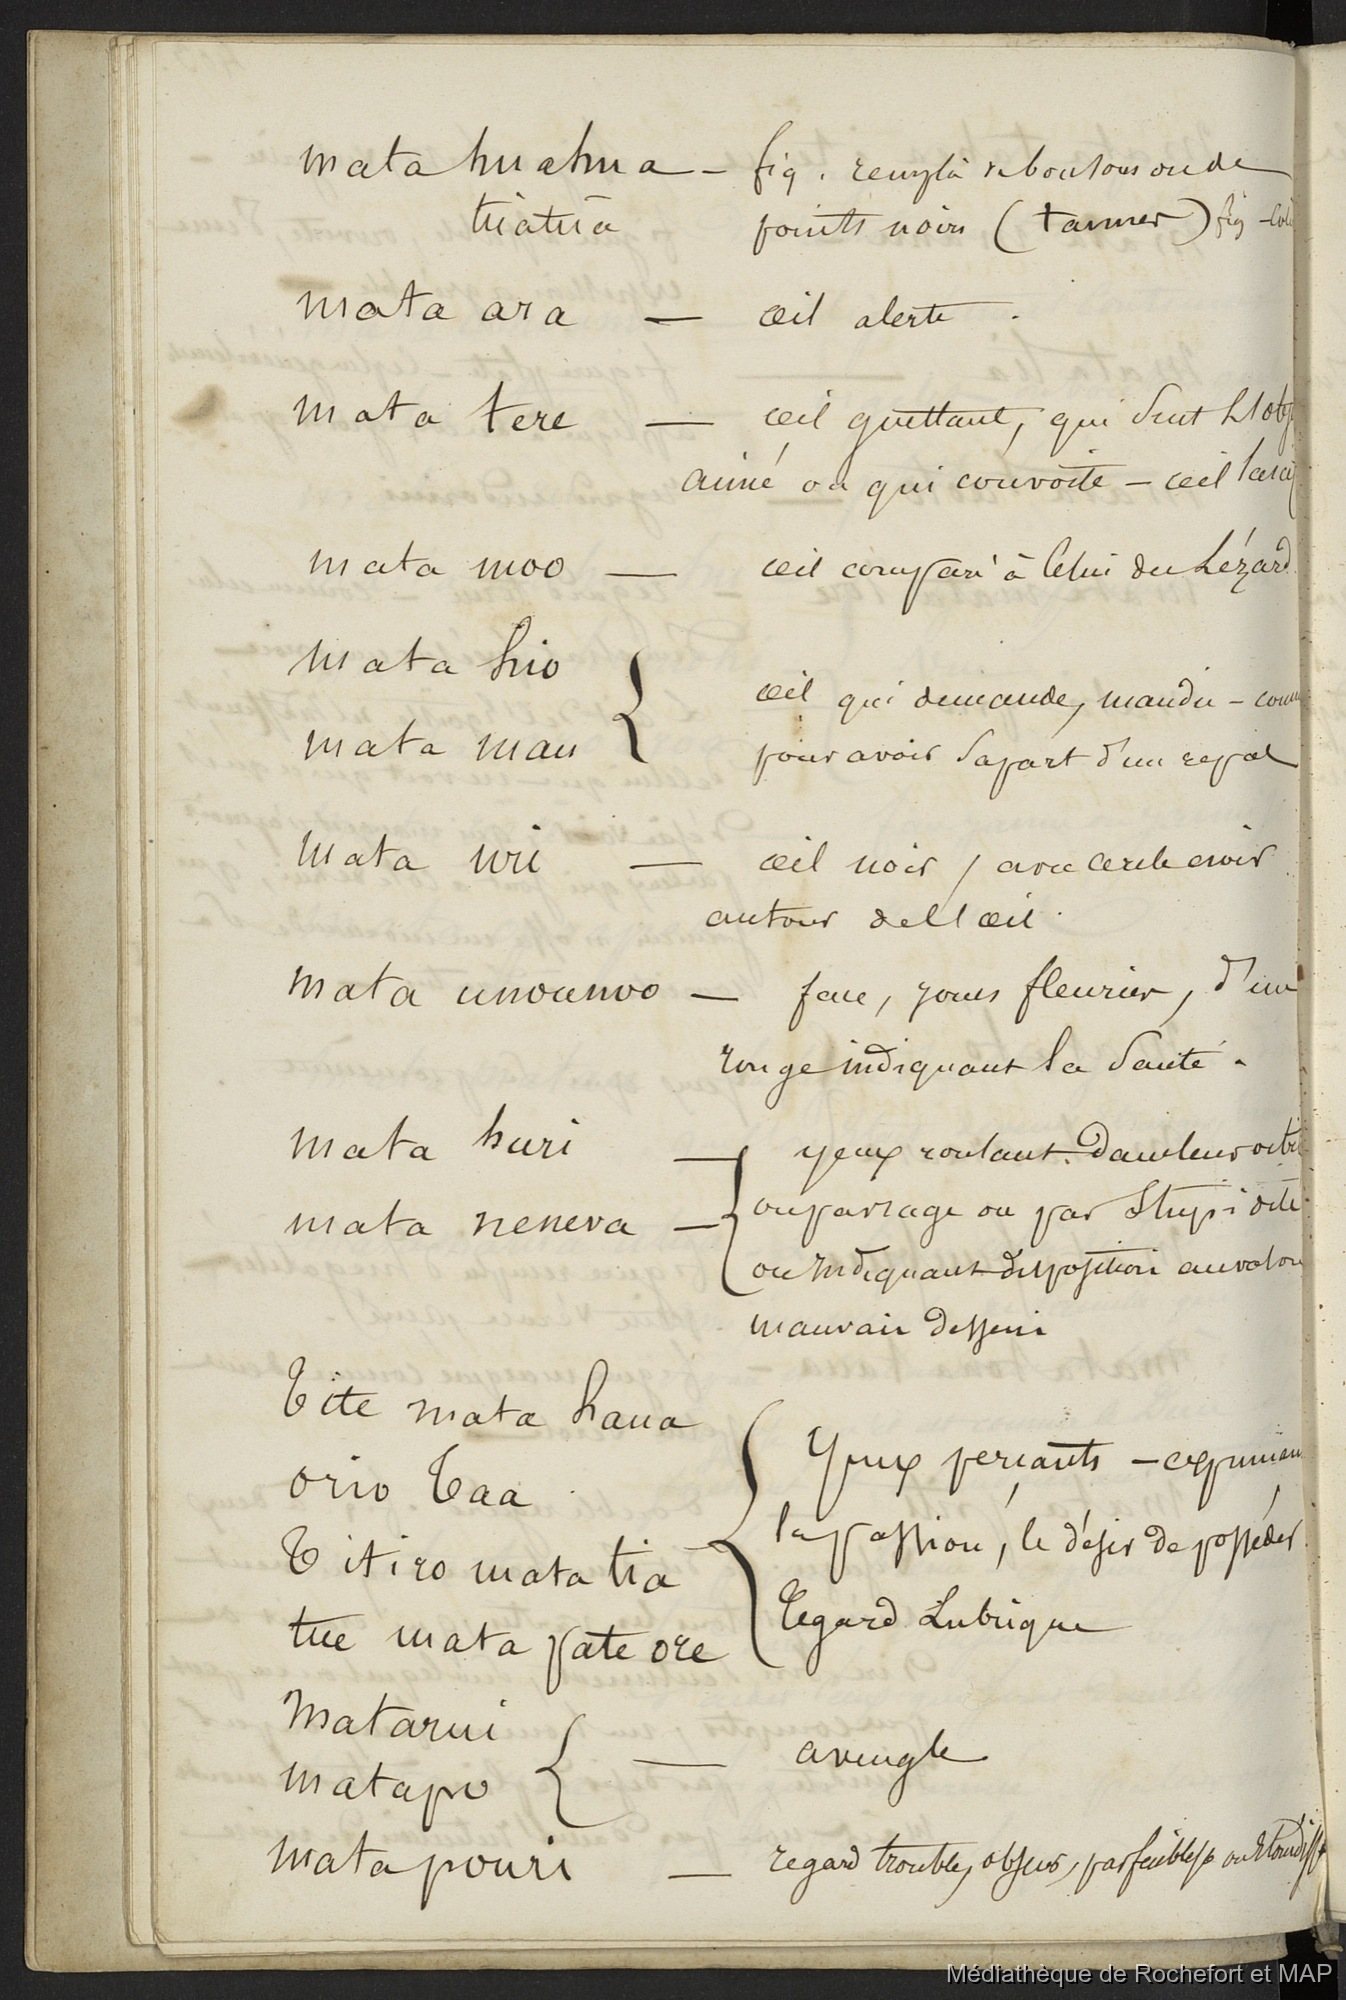 mata huahua – fig. remplà de boutons ou de
tuatua points noirs (tanner) fig –
mata ara — œil alerte .
mata tere — œil guettant, qui suit l'obj
aimé ou qui convoite – œil lascif
mata moo — œil comparé à celui du Lézard
mata hio
mata mau { œil qui demande, mandie – comme
pour avoir sa part d'un repas
mata uri — œil noir, avec cercle noir
autour de l'œil.
mata unounoo — face, joues fleuries, d'un
rouge indiquant la santé.
mata huri — yeux roulant dans leur orbite
mata neneva — { ou par rage ou par stupidité
ou indiquant disposition au vol ou
mauvais dessein
Tite mata haua
orio Taa
Titiro mata tia
tue mata pate ore
{ Yeux perçants – exprimant
la passion, le désir de posséder
Regard Lubrique
Matarui
matapo { — aveugle
mata pouri — regard trouble, obscur, par faiblesse ou
Médiathèque de Rochefort et MAP